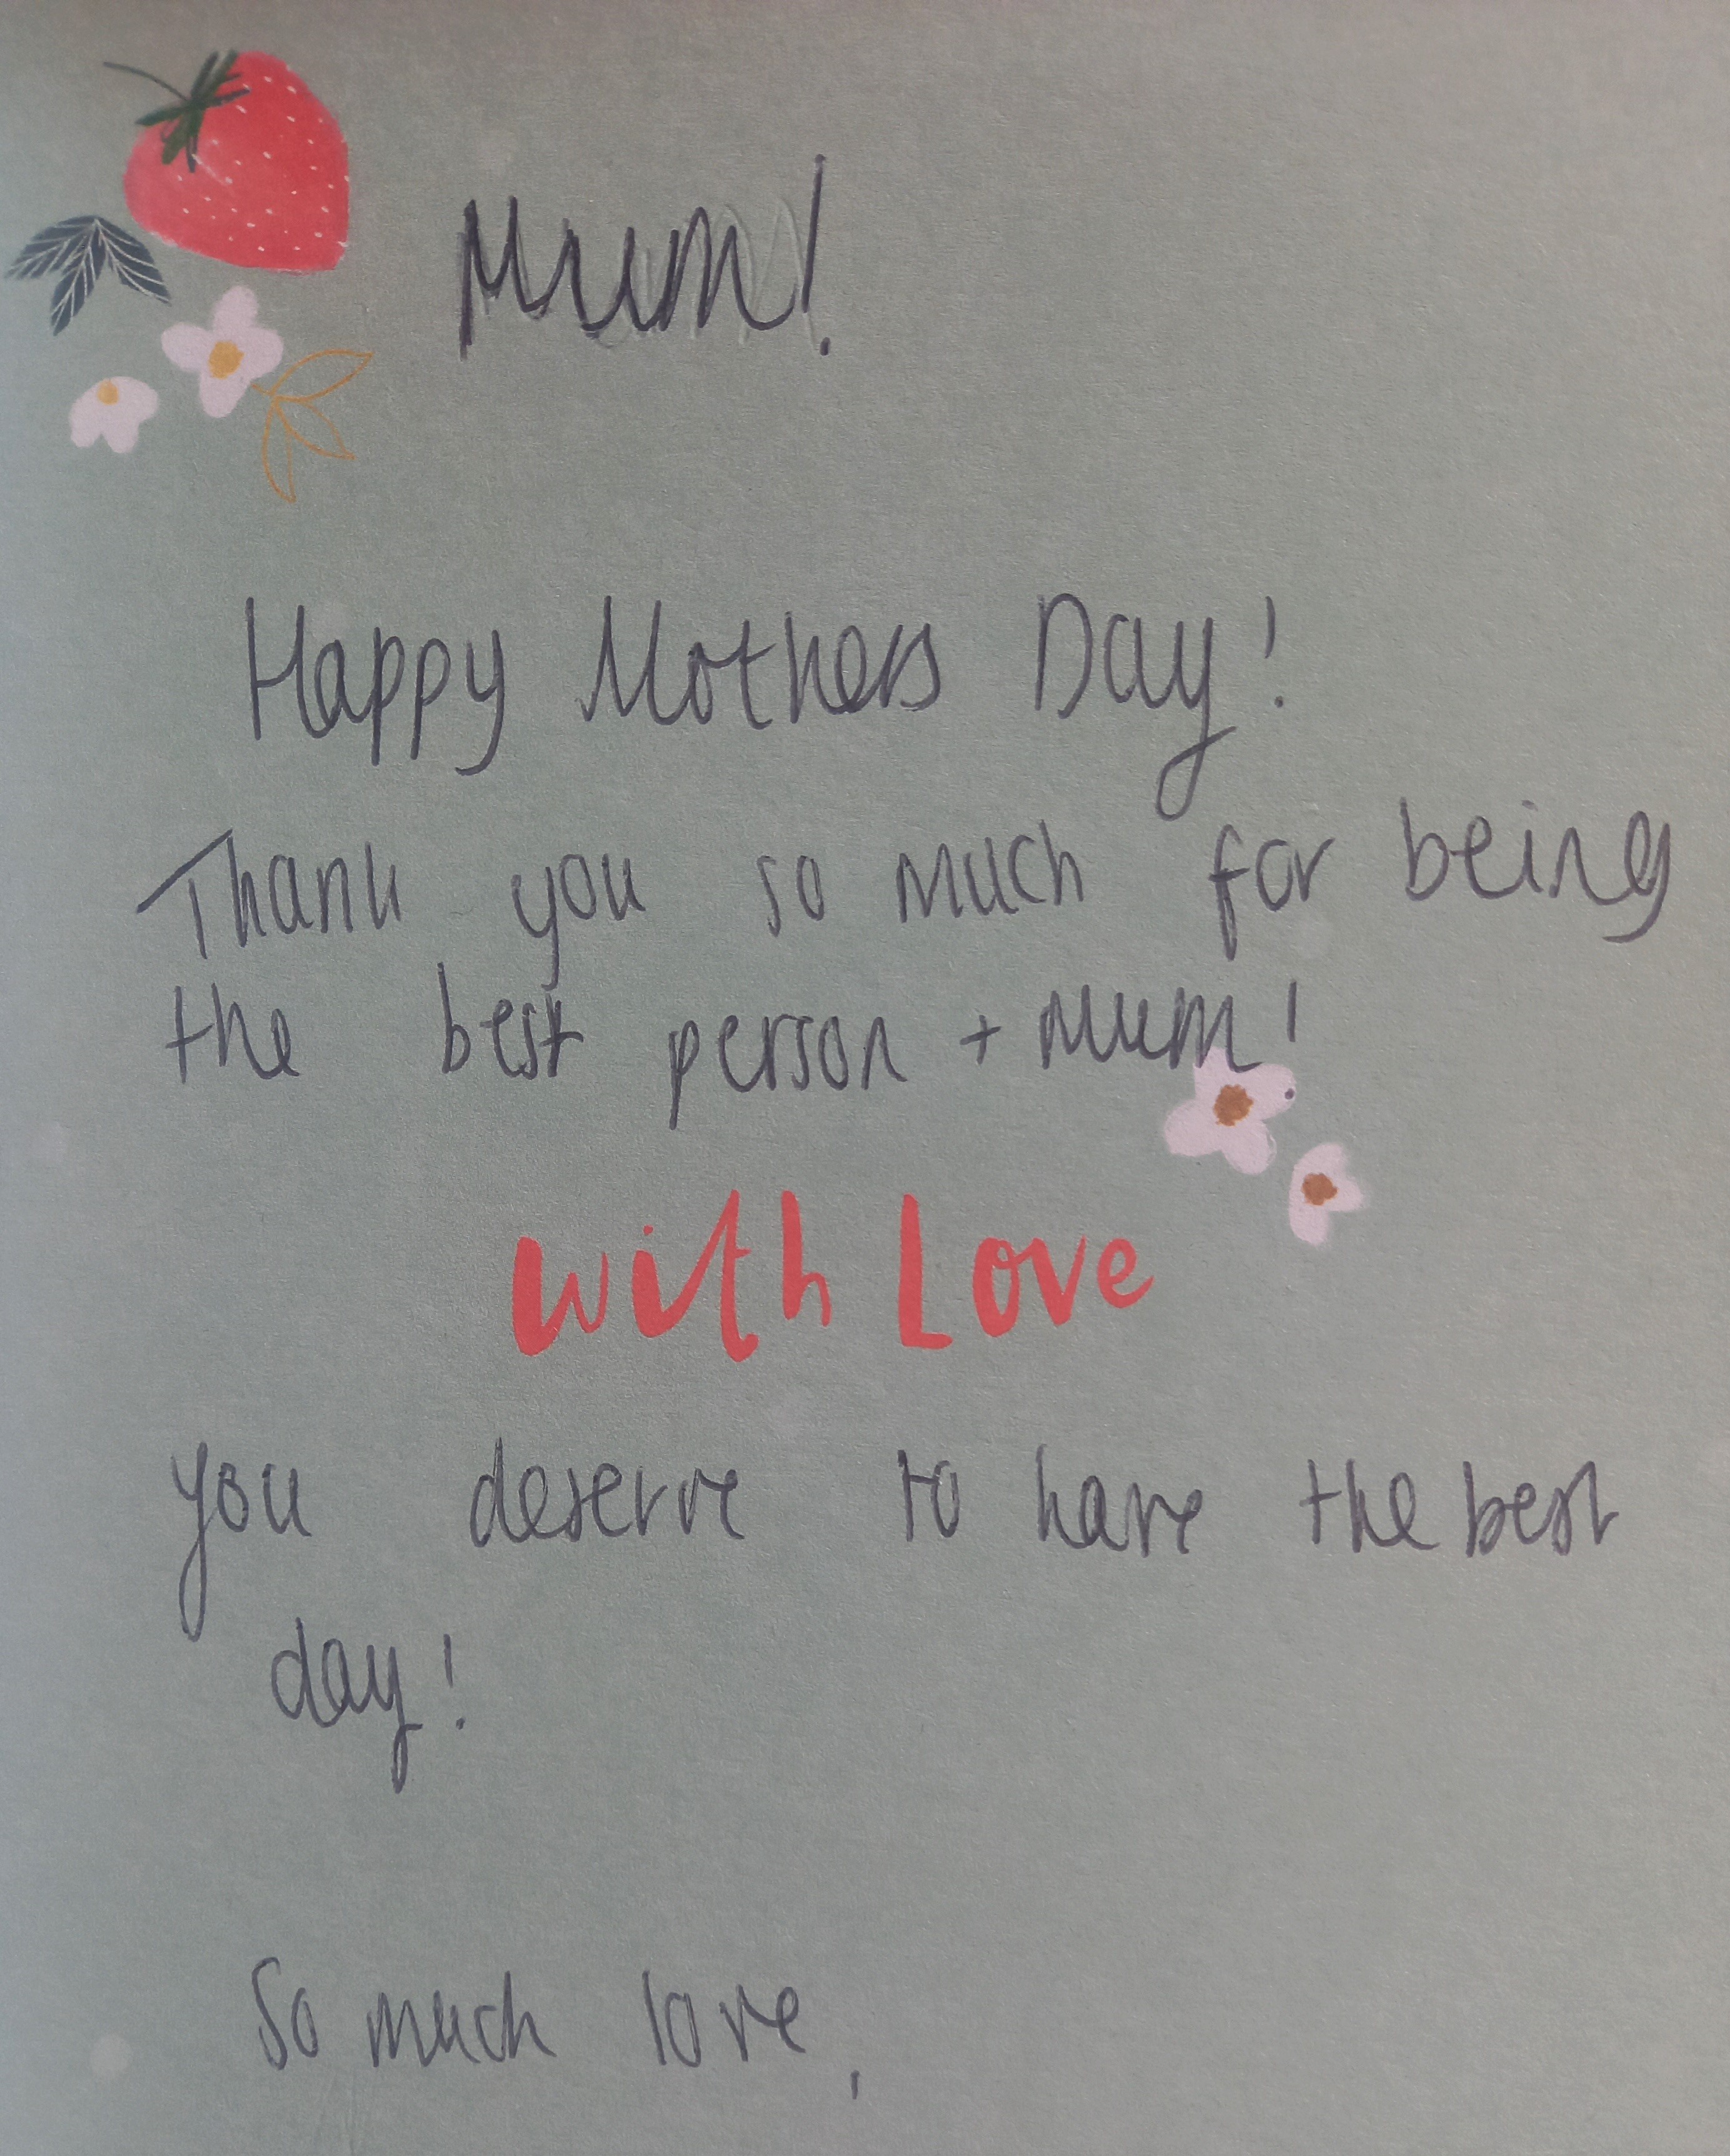 Mum!
Happy Mothers Day!
Thank you so much for being
the best person + Mum!
with Love
you deserve to have the best
day!
So much love,